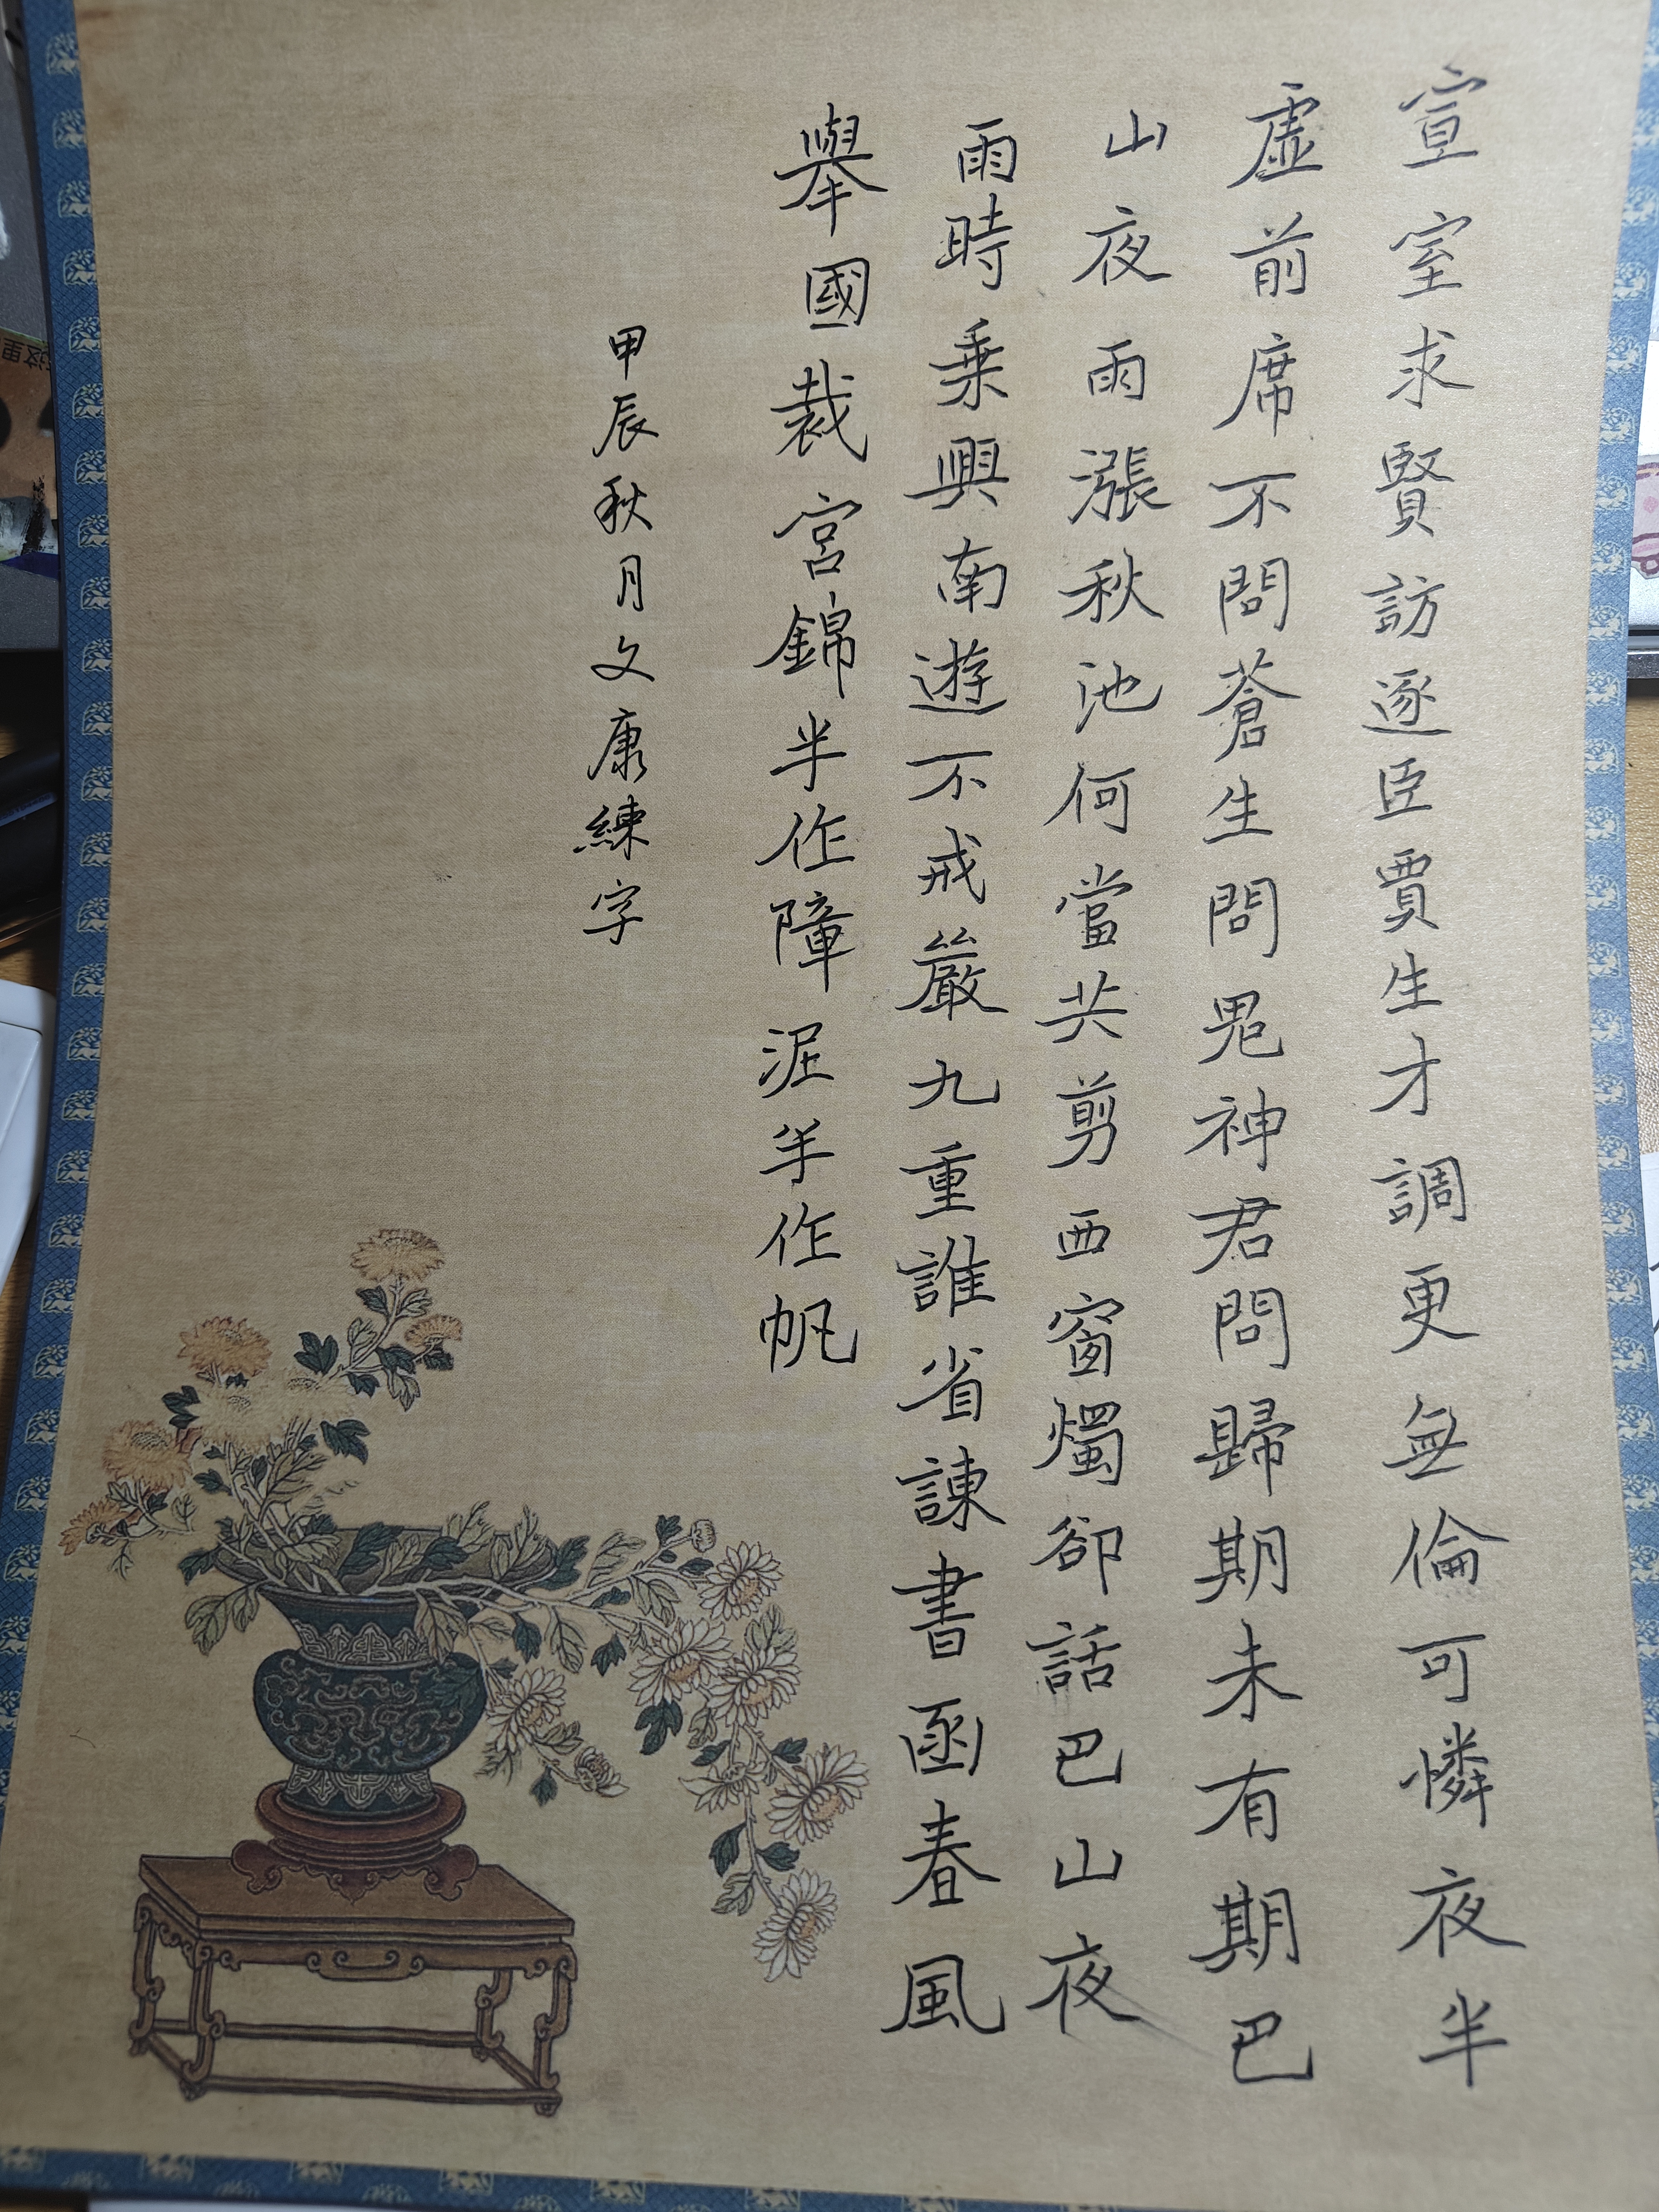 宣室求賢訪逐臣賈生才調更無倫可憐夜半
虛前席不問蒼生問鬼神君問歸期未有期巴
山夜雨漲秋池何當共剪西窗燭卻話巴山夜
雨時乘興南遊不戒嚴九重誰省諫書函春風
舉國裁宮錦半作障泥半作帆
甲辰秋月文康練字